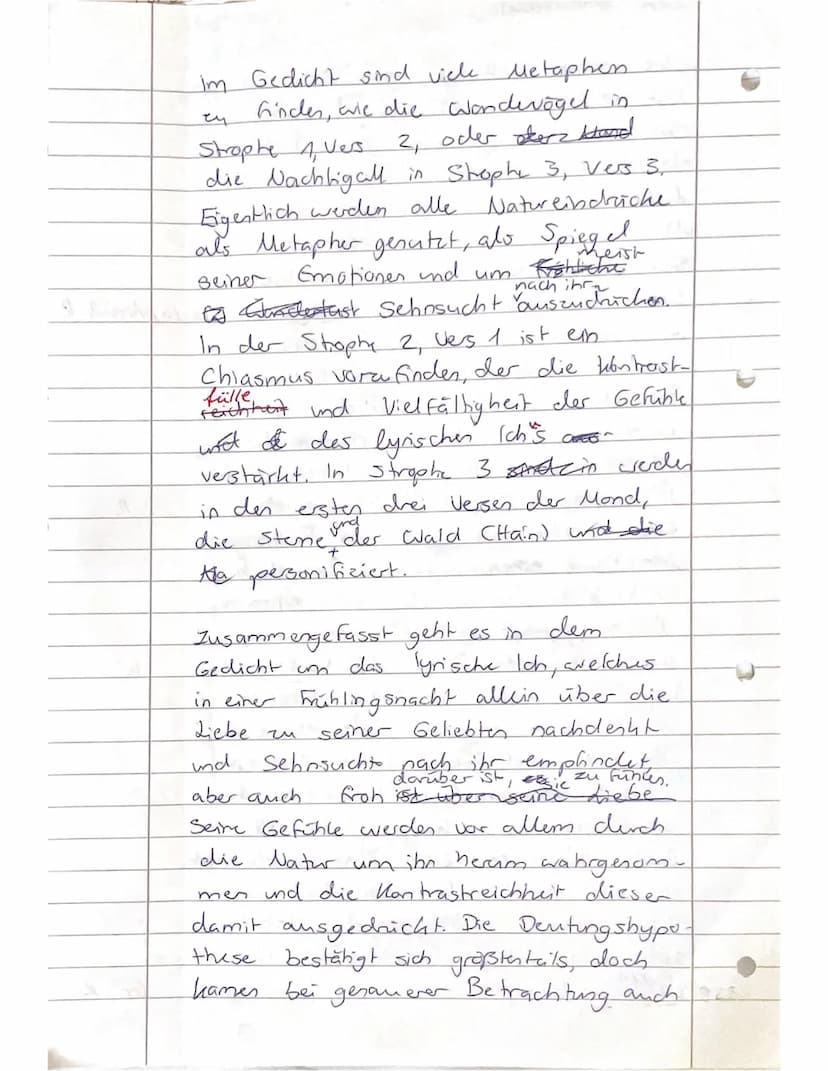 Im Gedicht sind viele Metaphern
zu finden, wie die Wandervögel in
Strophe 1, Vers 2, oder
die Nachtigall in Strophe 3, Vers 3.
Eigentlich werden alle Natureindrücke
als Metapher genutzt, als Spiegel
meist
seiner Emotionen und um
nach ihr
Sehnsucht auszudrücken.
In der Strophe 2, Vers 1 ist ein
Chiasmus vorzufinden, der die Kontrast-
fülle
reichheit und Vielfältigheit der Gefühle
des lyrischen Ich's
verstärkt. In Strophe 3 werden
in den ersten drei Versen der Mond,
und
die Sterne + der Wald (Hain) und die
personifiziert.
Zusammengefasst geht es in dem
Gedicht um das lyrische Ich, welches
in einer Frühlingsnacht allein über die
Liebe zu seiner Geliebten nachdenkt
und Sehnsucht nach ihr empfindet,
darüber ist, sie zu fühlen.
aber auch froh ist über seine Liebe
Seine Gefühle werden vor allem durch
die Natur um ihn herum wahrgenom-
men und die Kontrastreichheit dieser
damit ausgedrückt. Die Deutungshypo-
these bestätigt sich größtenteils, doch
kamen bei genauerer Betrachtung auch